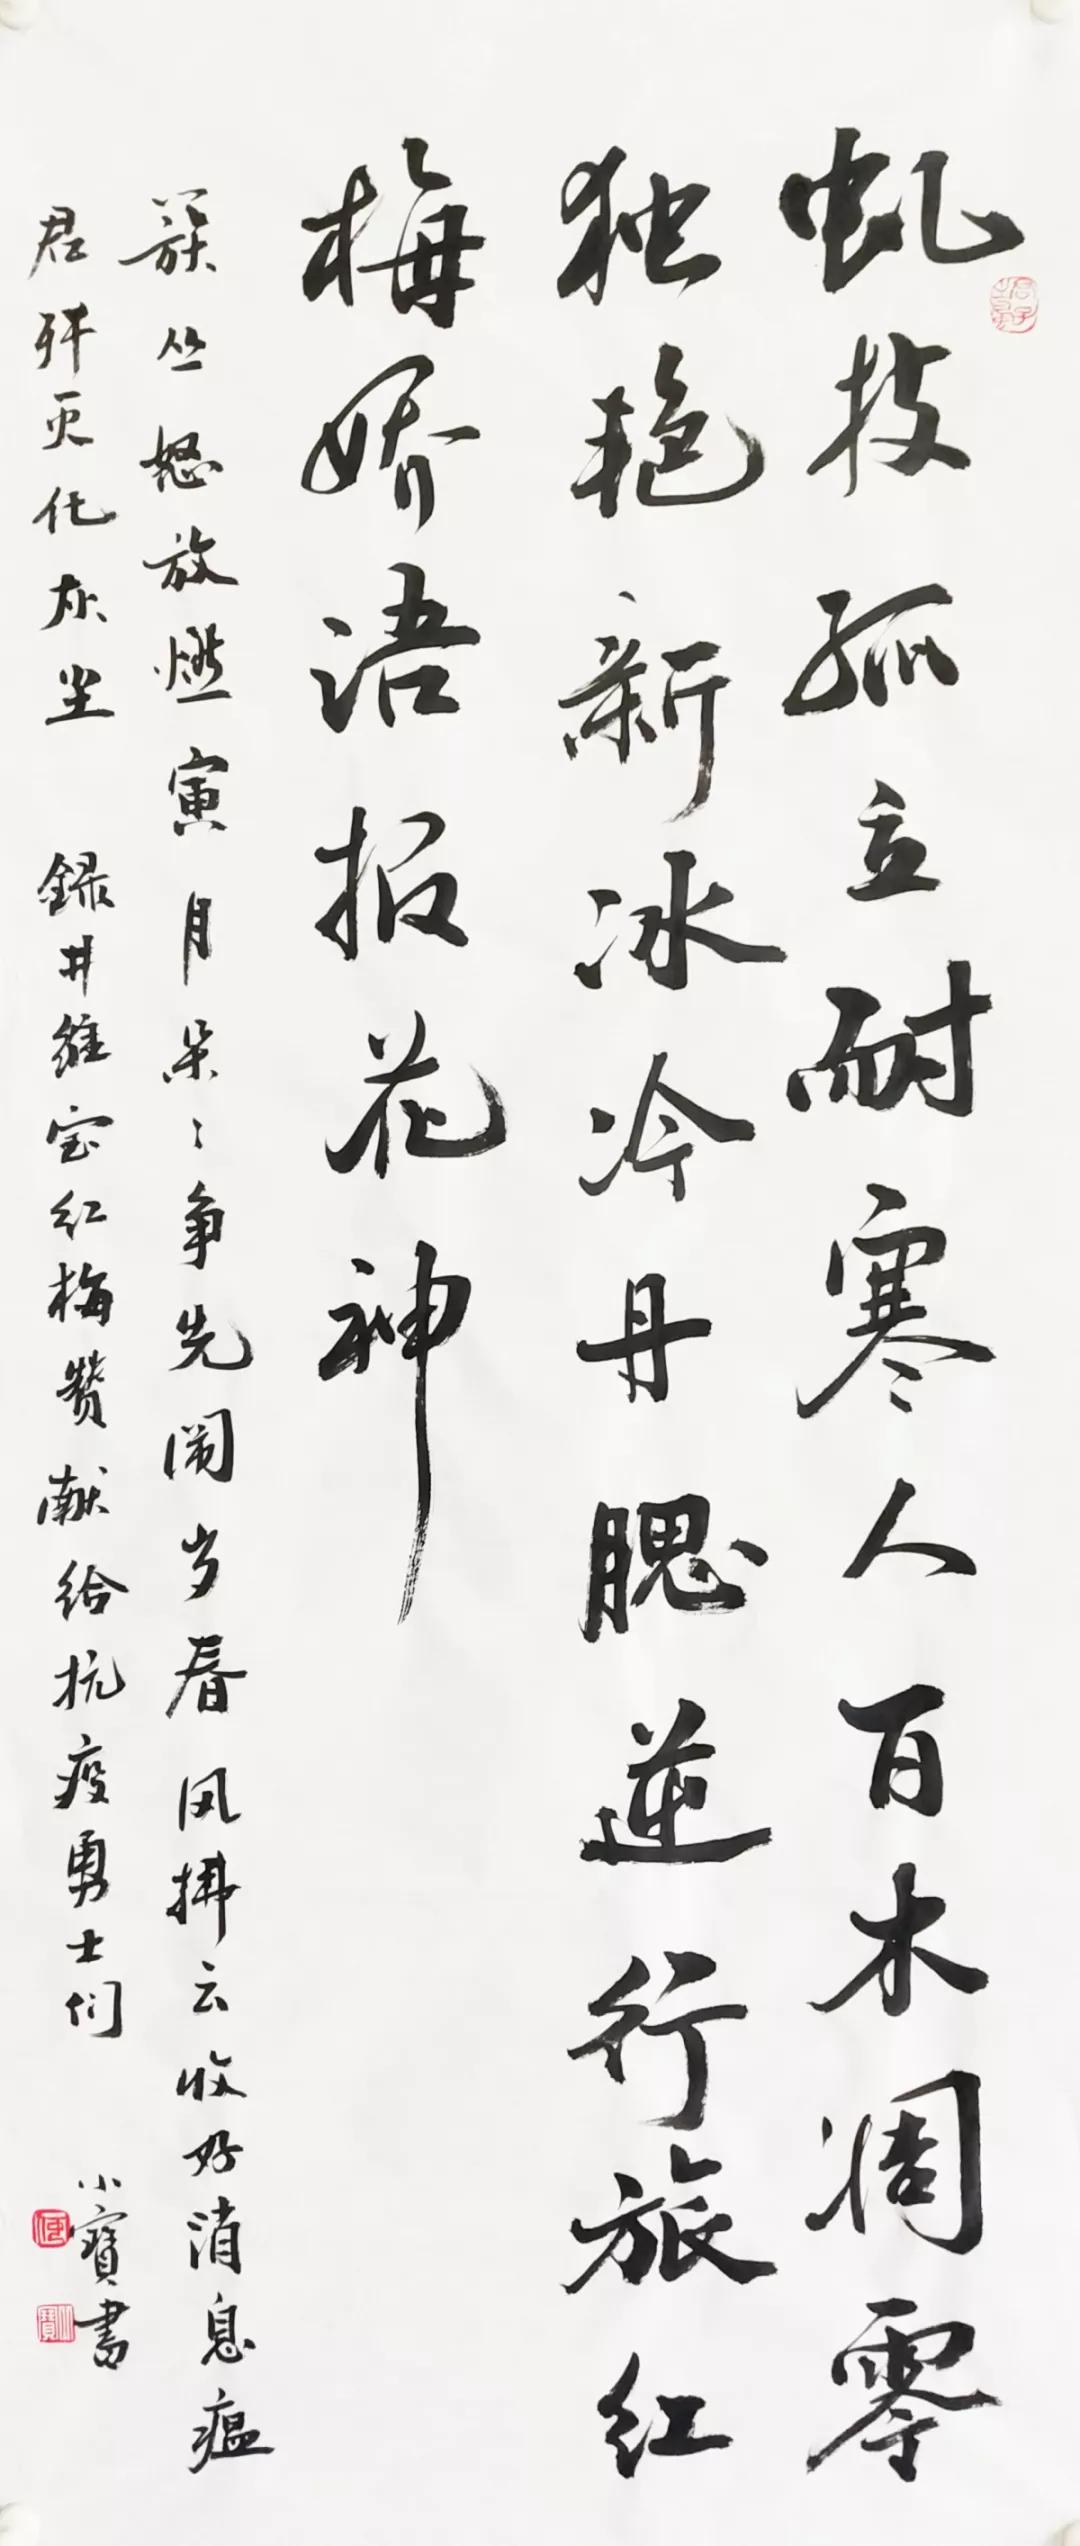 虬技孤立耐寒人百木凋零
独艳新冰冷丹腮逆行旅红
梅娇语报花神
簇丛怒放燃寅月朵〻争先闹岁春风拂云收好消息瘟
君歼灭化灰尘 録井维宝红梅赞献给抗疫勇士们
小寳書